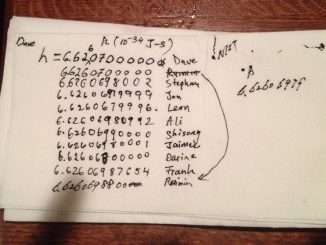 Dave
h (10^-34 J-s)
h = 6.62070000000 Dave
6.62607000000 Ramin
6.62606980 02 Stephan
6.6260697999 Jon
6.6260679996 Leon
6.6260698 0992 Ali
6.6260699 0000 Shisong
6.6260698 0001 Jaimee
6.62606980000 Darine
6.62606987654 Frank
6.62606988 Ramin
NIST
A
6.62606979